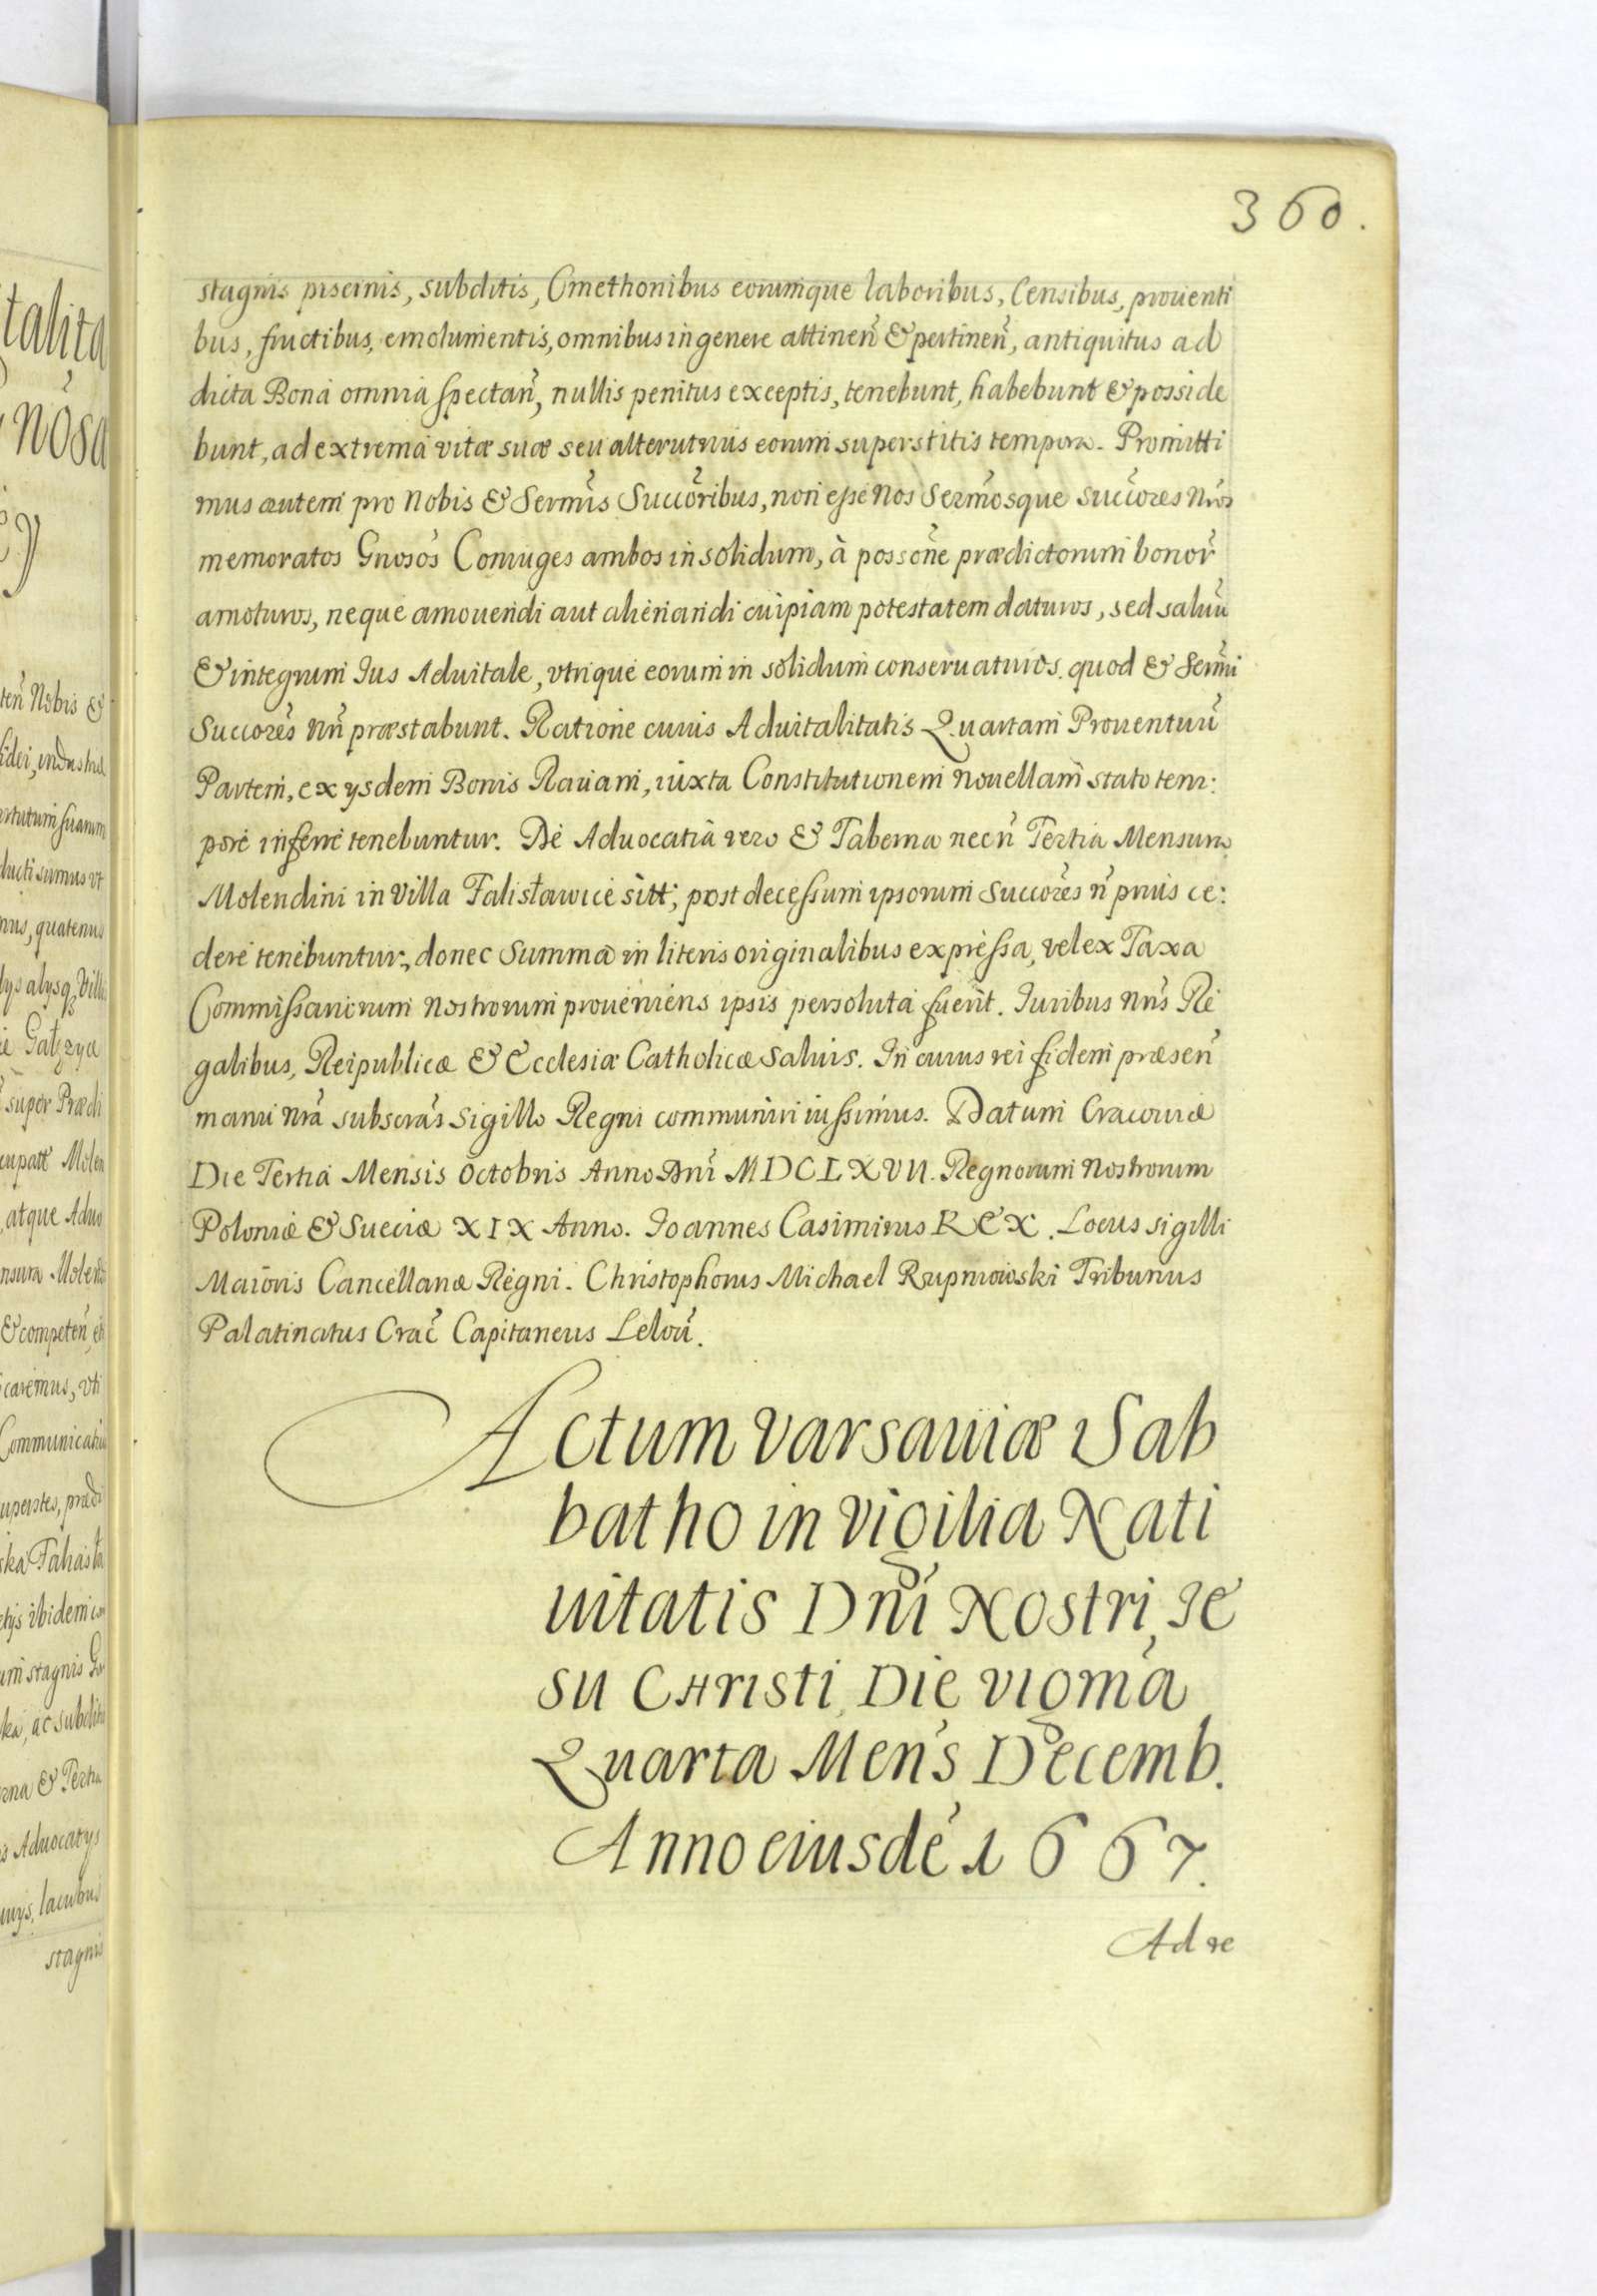 360.
stagnis piscinis, subditis, Cmethonibus eorumque laboribus, Censibus, prouenti
bus, fructibus, emolumentis, omnibus in genere attinen̄ & pertinen̄, antiquitus ad
dicta Bona omnia spectan̄, nullis penitus exceptis, tenebunt, habebunt & posside
bunt, ad extrema vitæ suæ seu alterutrius eorum superstitis tempora. Promitti
mus autem pro Nobis & Serm̄is Succoribus, non esse Nos Serm̄osque succores Nr̄os
memoratos Gnosos Coniuges ambos in solidum, à possone prædictorum bonor̄
amoturos, neque amouendi aut alienandi cuipiam potestatem daturos, sed saluū
& integrum Ius Aduitale, vtrique eorum in solidum conseruaturos. quod & Serm̄i
Succores Nr̄i præstabunt. Ratione cuius Aduitalitatis Quartam Prouentuū
Partem, ex ysdem Bonis Rauam, iuxta Constitutionem nouellam stato tem:
pore inferre tenebuntur. De Aduocatia vero & Taberna necn̄ Tertia Mensura
Molendini in Villa Falisławice sitt; post decessum ipsorum Succores n̄ prius ce:
dere tenebuntur, donec Summa in literis originalibus expressa, vel ex Taxa
Commissariorum Nostrorum proueniens ipsis persoluta fuerit. Iuribus Nr̄is Re
galibus, Reipublicæ & Ecclesiæ Catholicæ saluis. In cuius rei fidem præsen̄
manu Nr̄a subscras sigillo Regni communiri iussimus. Datum Cracouiæ
Die Tertia Mensis Octobris Anno Dn̄i MDCLXVII. Regnorum Nostrorum
Poloniæ & Sueciæ XIX Anno. Ioannes Casimirus REX. Locus sigilli
Maioris Cancellariæ Regni. Christophorus Michael Rupniowski Tribunus
Palatinatus Crac̄ Capitaneus Lelou̅.
Actum Varsauiæ Sab
batho in Vigilia Nati
uitatis Dn̄i Nostri, Ie
su Christi, Die vigm̄a
Quarta Mens̄ Decemb.
Anno eiusdē 1667.
Ad re
talita
nosa
ten̄ Nobis &
fidei, industria
ducti sumus vt
mus, quatenus
super Prædi
atque Aduo
nsura Molend
& competen̄
caremus, vti
Communicatiu
superstes, prædi
um stagnis
ka, ac subditis
rna & Tertia
Aduocatys
lacubus
stagnis